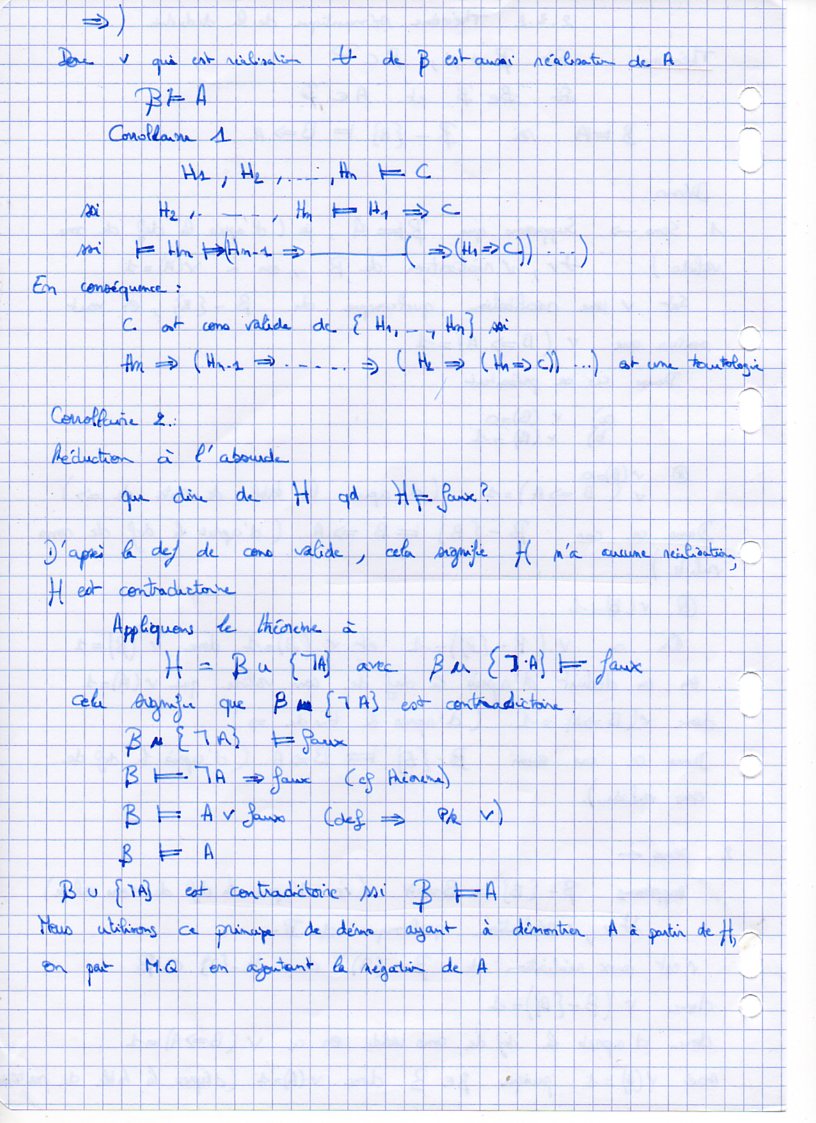 ⇒)
Donc v qui est réalisation de B est aussi réalisation de A
B ⊨ A
Corollaire 1
H1, H2, ....., Hn ⊨ C
ssi H2, ....., Hn ⊨ H1 ⇒ C
ssi ⊨ Hn ⇒ (Hn-1 ⇒ ———— ( ⇒ (H1 ⇒ C)) ...)
En conséquence :
C est cons valide de { H1, ..., Hn} ssi
Hn ⇒ (Hn-1 ⇒ ...... ⇒ ( H2 ⇒ (H1 ⇒ C)) ...) est une tautologie
Corollaire 2.:
Réduction à l'absurde
que dire de H qd H ⊨ faux?
D'après la def de cons valide, cela signifie H n'a aucune réalisation,
H est contradictoire
Appliquons le théorème à
H = B ∪ {¬A} avec B ∪ {¬A} ⊨ faux
cela signifie que B ∪ {¬A} est contradictoire.
B ∪ {¬A} ⊨ faux
B ⊨ ¬A ⇒ faux (cf théorème)
B ⊨ A ∨ faux (def ⇒ ∨)
B ⊨ A
B ∪ {¬A} est contradictoire ssi B ⊨ A
Nous utilisons ce principe de démo ayant à démontrer A à partir de H,
on peut M.Q en ajoutant la négation de A